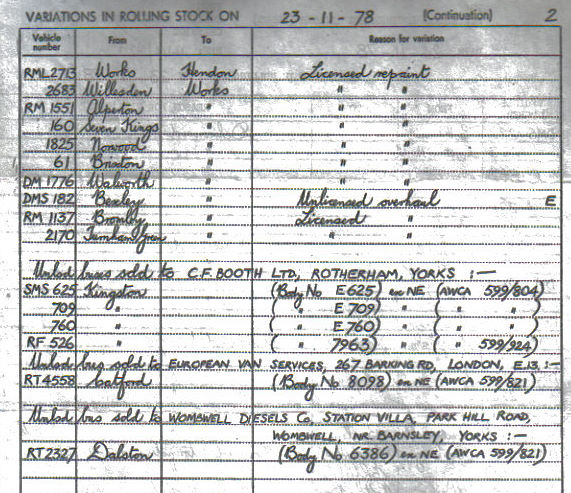 VARIATIONS IN ROLLING STOCK ON 23-11-78 (Continuation) 2
Vehicle number From To Reason for variation
RML2713 Works Hendon Licensed repaint
2683 Willesden Works " "
RM 1551 Alperton " " "
160 Seven Kings " " "
1825 Norwood " " "
61 Brixton " " "
DM 1776 Walworth " " "
DMS 182 Bexley " Unlicensed overhaul E
RM 1137 Bromley " Licensed "
2170 Turnham Green " " "
Unlcd buses sold to C.F. BOOTH LTD, ROTHERHAM, YORKS :—
SMS 625 Kingston (Body No E625) ex NE (AWCA 599/804)
709 " ( " E709) " ( " " )
760 " ( " E760) " ( " " )
RF 526 " ( " 7963) " ( " 599/924)
Unlcd bus sold to EUROPEAN VAN SERVICES, 267 BARKING RD, LONDON, E.13. :—
RT4558 Catford (Body No 8098) ex NE (AWCA 599/821)
Unlcd bus sold to WOMBWELL DIESELS Co, STATION VILLA, PARK HILL ROAD,
WOMBWELL, NR. BARNSLEY, YORKS :—
RT2327 Dalston (Body No 6386) ex NE (AWCA 599/821)